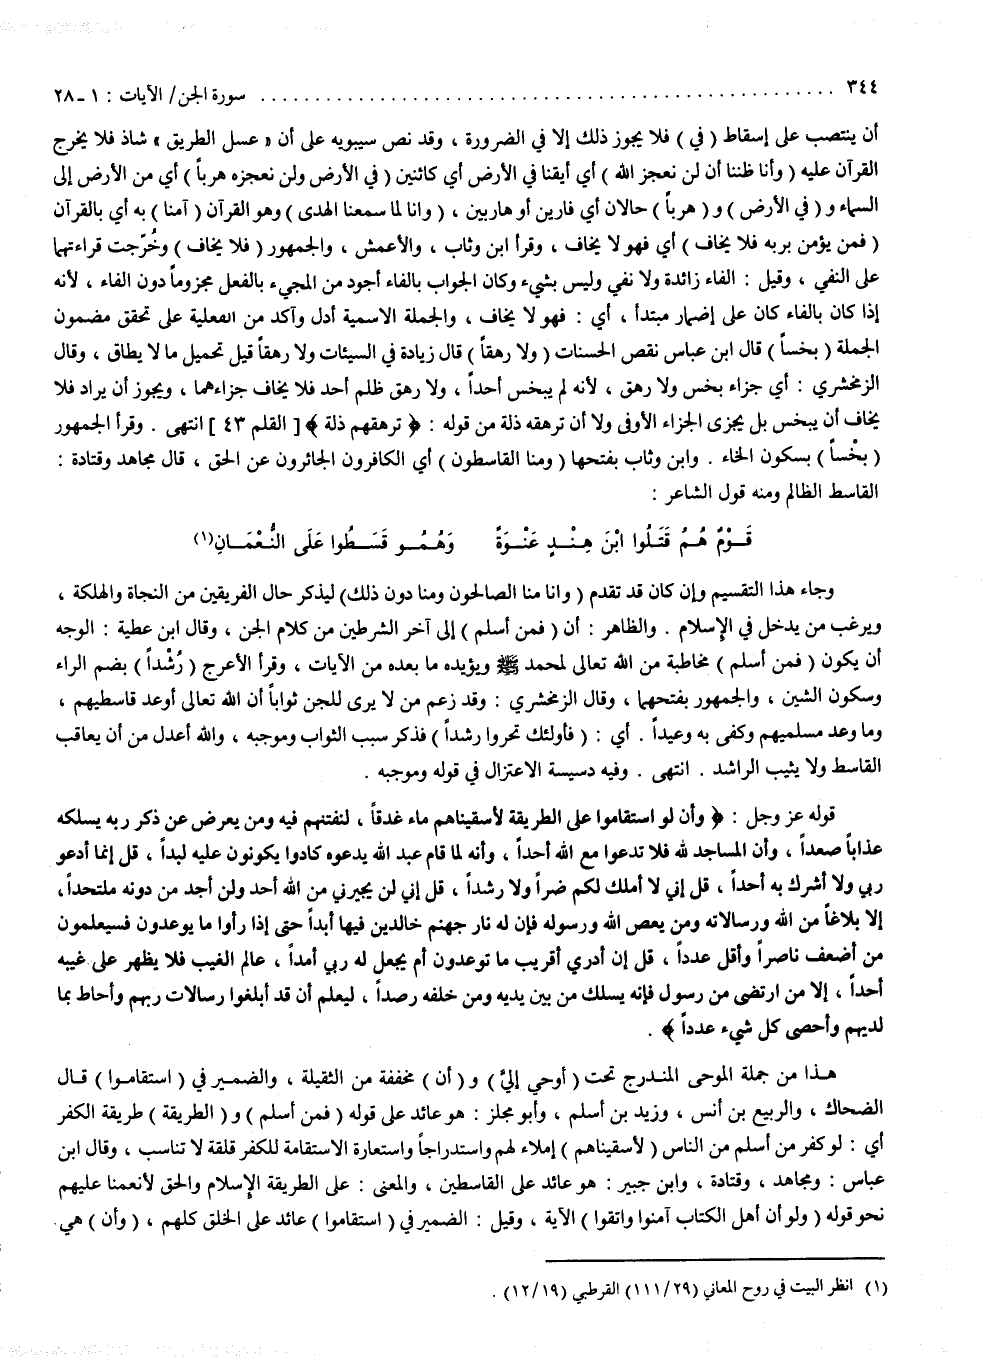 ٣٤٤ ........................................................ سورة الجن/ الآيات : ١ ـ ٢٨
أن ينتصب على إسقاط ( في ) فلا يجوز ذلك إلا في الضرورة ، وقد نص سيبويه على أن « عسل الطريق » شاذ فلا يخرج
القرآن عليه ( وأنا ظننا أن لن نعجز الله ) أي أيقنا في الأرض أي كائنين ( في الأرض ولن نعجزه هرباً ) أي من الأرض إلى
السماء و ( في الأرض ) و ( هرباً ) حالان أي فارين أو هاربين ، ( وانا لما سمعنا الهدى ) وهو القرآن ( آمنا ) به أي بالقرآن
( فمن يؤمن بربه فلا يخاف ) أي فهو لا يخاف ، وقرأ ابن وثاب ، والأعمش ، والجمهور ( فلا يخاف ) وخُرّجت قراءتهما
على النفي ، وقيل : الفاء زائدة ولا نفي وليس بشيء وكان الجواب بالفاء أجود من المجيء بالفعل مجزوماً دون الفاء ، لأنه
إذا كان بالفاء كان على إضمار مبتدأ ، أي : فهو لا يخاف ، والجملة الاسمية أدل وآكد من الفعلية على تحقق مضمون
الجملة ( بخساً ) قال ابن عباس نقص الحسنات ( ولا رهقاً ) قال زيادة في السيئات ولا رهقاً قيل تحميل ما لا يطاق ، وقال
الزمخشري : أي جزاء بخس ولا رهق ، لأنه لم يبخس أحداً ، ولا رهق ظلم أحد فلا يخاف جزاءهما ، ويجوز أن يراد فلا
يخاف أن يبخس بل يجزى الجزاء الأوفى ولا أن ترهقه ذلة من قوله : ﴿ ترهقهم ذلة ﴾ [ القلم ٤٣ ] انتهى . وقرأ الجمهور
( بخْساً ) بسكون الخاء . وابن وثاب بفتحها ( ومنا القاسطون ) أي الكافرون الجائرون عن الحق ، قال مجاهد وقتادة :
القاسط الظالم ومنه قول الشاعر :
قَـوْمٌ هُمُ قَتَلُوا ابْنَ هِنْـدٍ عَنْوَةً وَهُمُـو قَسَـطُوا عَلَى النُّعْمَـانِ(١)
وجاء هذا التقسيم وإن كان قد تقدم ( وانا منا الصالحون ومنا دون ذلك ) ليذكر حال الفريقين من النجاة والهلكة ،
ويرغب من يدخل في الإسلام . والظاهر : أن ( فمن أسلم ) إلى آخر الشرطين من كلام الجن ، وقال ابن عطية : الوجه
أن يكون ( فمن أسلم ) مخاطبة من الله تعالى لمحمد ﷺ ويؤيده ما بعده من الآيات ، وقرأ الأعرج ( رُشْداً ) بضم الراء
وسكون الشين ، والجمهور بفتحهما ، وقال الزمخشري : وقد زعم من لا يرى للجن ثواباً أن الله تعالى أوعد قاسطيهم ،
وما وعد مسلميهم وكفى به وعيداً . أي : ( فأولئك تحروا رشداً ) فذكر سبب الثواب وموجبه ، والله أعدل من أن يعاقب
القاسط ولا يثيب الراشد . انتهى . وفيه دسيسة الاعتزال في قوله وموجبه .
قوله عز وجل : ﴿ وأن لو استقاموا على الطريقة لأسقيناهم ماء غدقاً ، لنفتنهم فيه ومن يعرض عن ذكر ربه يسلكه
عذاباً صعداً ، وأن المساجد لله فلا تدعوا مع الله أحداً ، وأنه لما قام عبد الله يدعوه كادوا يكونون عليه لبداً ، قل إنما أدعو
ربي ولا أشرك به أحداً ، قل إني لا أملك لكم ضراً ولا رشداً ، قل إني لن يجيرني من الله أحد ولن أجد من دونه ملتحداً ،
إلا بلاغاً من الله ورسالاته ومن يعص الله ورسوله فإن له نار جهنم خالدين فيها أبداً حتى إذا رأوا ما يوعدون فسيعلمون
من أضعف ناصراً وأقل عدداً ، قل إن أدري أقريب ما توعدون أم يجعل له ربي أمداً ، عالم الغيب فلا يظهر على غيبه
أحداً ، إلا من ارتضى من رسول فإنه يسلك من بين يديه ومن خلفه رصداً ، ليعلم أن قد أبلغوا رسالات ربهم وأحاط بما
لديهم وأحصى كل شيء عدداً ﴾ .
هـذا من جملة الموحى المنـدرج تحت ( أوحي إليّ ) و ( أن ) مخففة من الثقيلة ، والضمـير في ( استقامـوا ) قـال
الضحاك ، والربيع بن أنس ، وزيد بن أسلم ، وأبو مجلز : هو عائد على قوله ( فمن أسلم ) و ( الطريقة ) طريقة الكفر
أي : لو كفر من أسلم من الناس ( لأسقيناهم ) إملاء لهم واستدراجاً واستعارة الاستقامة للكفر قلقة لا تناسب ، وقال ابن
عباس : ومجاهد ، وقتادة ، وابن جبير : هو عائد على القاسطين ، والمعنى : على الطريقة الإسلام والحق لأنعمنا عليهم
نحو قوله ( ولو أن أهل الكتاب آمنوا واتقوا ) الآية ، وقيل : الضمير في ( استقاموا ) عائد على الخلق كلهم ، ( وأن ) هي
(١) انظر البيت في روح المعاني (٢٩/ ١١١) القرطبي (١٩/ ١٢) .